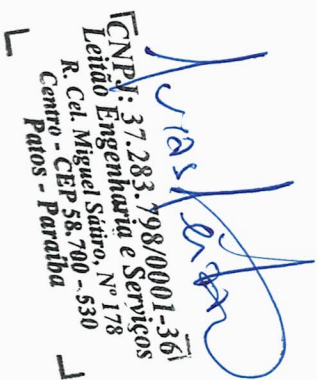 CNPJ: 37.283.798/0001-36
Leitão Engenharia e Serviços
R. Cel. Miguel Sátiro, Nº 178
Centro - CEP 58.700 - 530
Patos - Paraíba